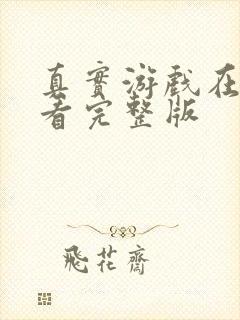 真實游戲在
看完整版
飛花齋